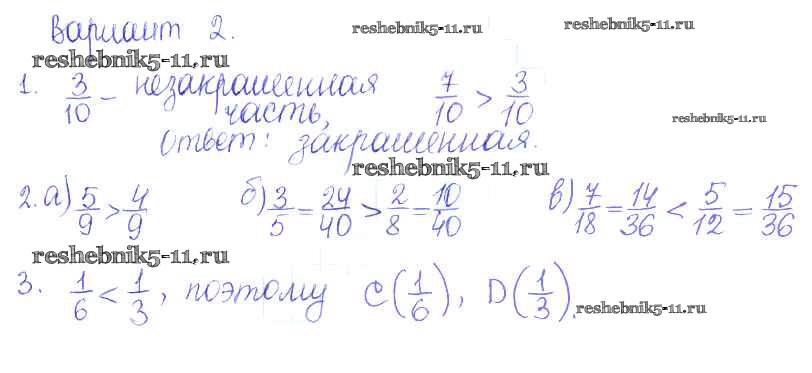 Вариант 2.
reshebnik5-11.ru
reshebnik5-11.ru
reshebnik5-11.ru
1. 3/10 – незакрашенная часть, 7/10 > 3/10
reshebnik5-11.ru
Ответ: закрашенная.
reshebnik5-11.ru
2. а) 5/9 > 4/9 б) 3/5 = 24/40 > 2/8 = 10/40 в) 7/18 = 14/36 < 5/12 = 15/36
reshebnik5-11.ru
3. 1/6 < 1/3, поэтому C(1/6), D(1/3).
reshebnik5-11.ru